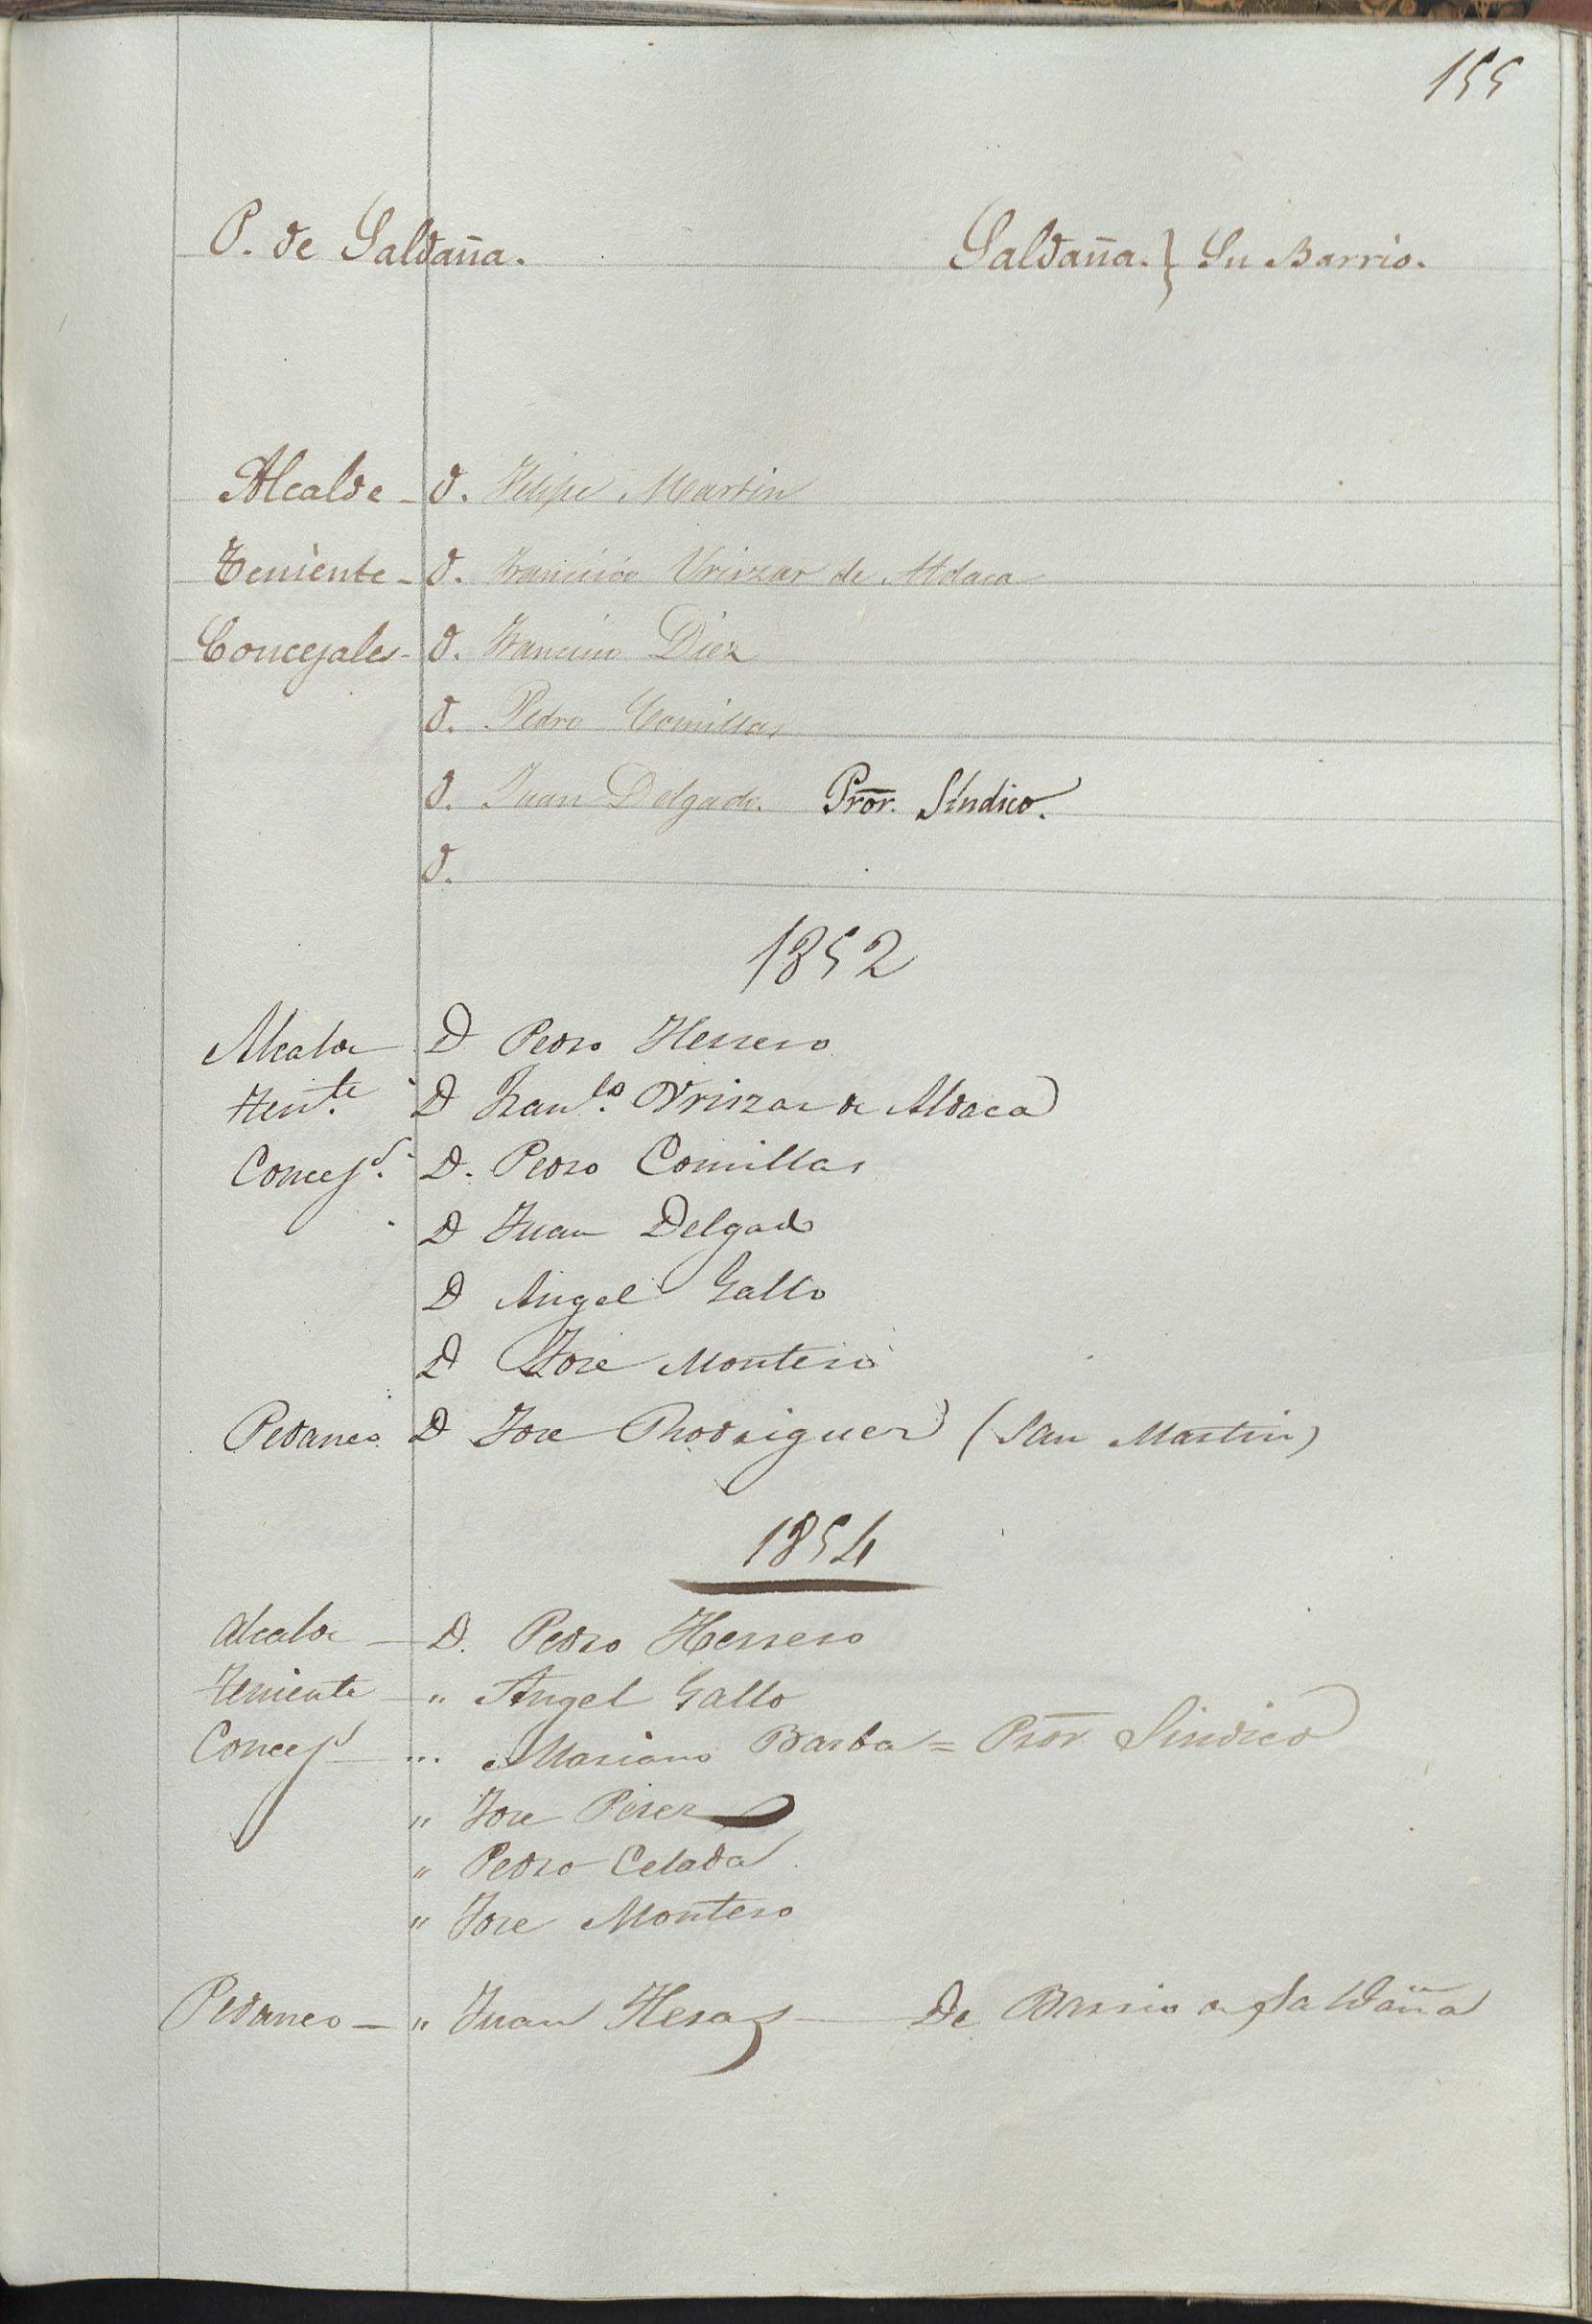 155
P. de Saldaña. Saldaña. } Su Barrio.
Alcalde - D. Felipe Martin
Teniente - D. Francisco Vrizar de Aldaca
Concejales - D. Francisco Diez
D. Pedro Comillas
D. Juan Delgado. Pror. Síndico.
D.
1852
Alcalde D Pedro Herrero
Ten.te D Fran.co Vrizar de Aldaca
Concej.s D. Pedro Comillas
D Juan Delgado
D Angel Gallo
D Jose Montero
Pedaneo D Jose Rodriguez (San Martin)
1854
Alcalde - D. Pedro Herrero
Teniente - " Angel Gallo
Concej.s - ... Mariano Barba = Pror Sindico
" Jose Perez
" Pedro Celada
" Jose Montero
Pedaneo - " Juan Heras - De Barrio de Saldaña